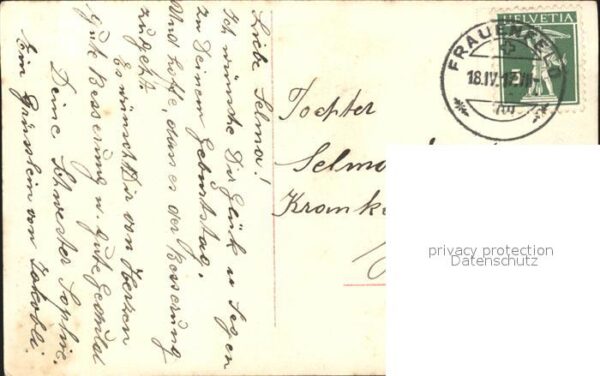 Liebe Selma!
Ich wünsche Dir Glück u Segen
zu Deinem Geburtstag.
Und hoffe, dass es der Besserung
zugeht.
Es wünscht Dir von Herzen
Gute Besserung u. gute Geduld
Deine Schwester Sophie.
Ein Grüsslein von Jakobli.
HELVETIA
FRAUENFELD
18.IV.17
Tochter
Selma
Kranke
privacy protection
Datenschutz